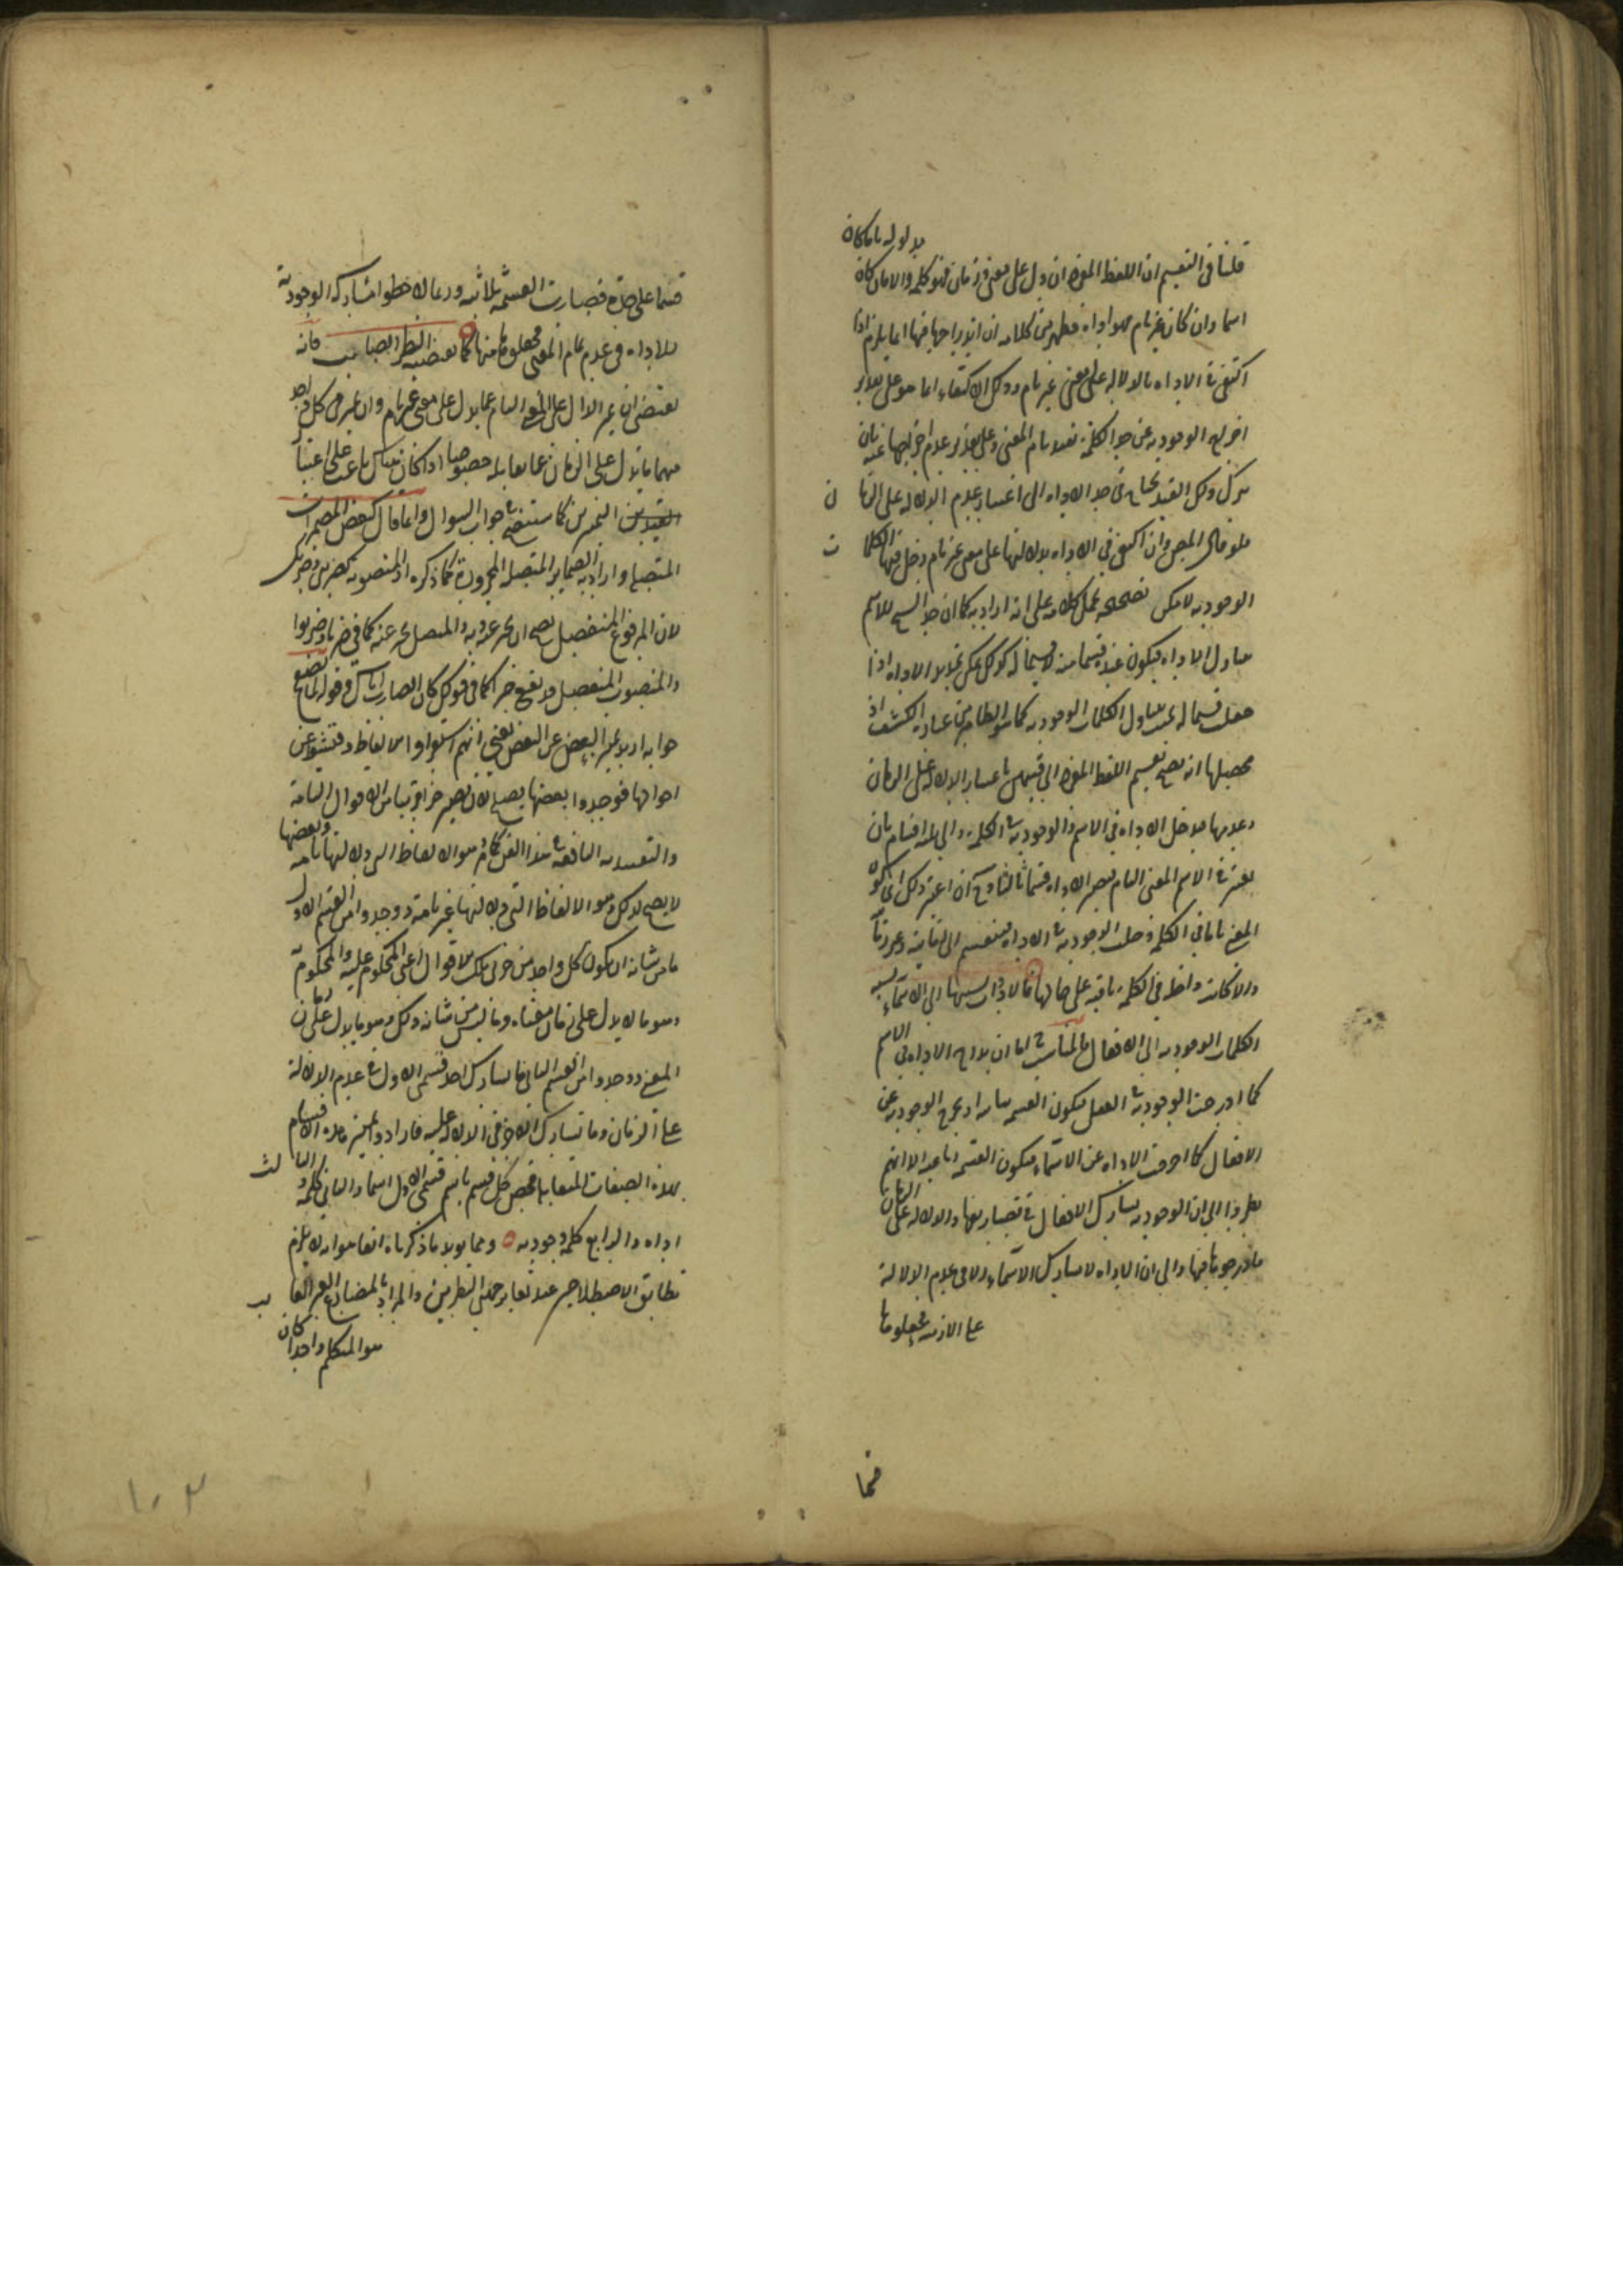 مدلوله تاما كان
قلنا فى التقسيم ان اللفظ المفرد ان دل على معنى وزمان فهو كلمة والا فان كان
اسما وان كان غير تام فهو اداة فظهر من كلامه ان اندراجها فيها انما يلزم اذا
اكتفى فى الاداة بالدلالة على معنى غير تام وذلك الاكتفاء انما هو على تقدير
اخراج الوجودية عن حد الكلمة بقيد تام المعنى وعلى تقدير عدم اخراجها عنه بان
ترك ذلك القيد يحتاج فى حد الاداة الى اعتبار عدم الدلالة على الزمان
فلو قال المص وان اكتفى فى الاداة بدلالتها على معنى غير تام دخل فيها الكلمات
الوجودية لامكن تصحيحه بحمل كلامه على انه اراد به كما ان حد الشيخ للاسم
يتناول الاداة فيكون عنده قسما منه لا قسيما له كذلك يمكن تحديد الاداة اذا
جعلت قسيما له بحيث يتناول الكلمات الوجودية كما هو الظاهر من عبارة الكشف اذ
محصلها انه يصح تقسيم اللفظ المفرد الى قسمين باعتبار الدلالة على الزمان
وعدمها فيدخل الاداة فى الاسم والوجودية فى الكلمة والى ثلثة اقسام بان
يعتبر فى الاسم المعنى التام فيصير الاداة قسما ثالثا وح ان اعتبر ذلك اى كون
المعنى تاما فى الكلمة دخلت الوجودية فى الاداة فينقسم الى زمانية وغير زمانية
والا كانت داخلة فى الكلمة باقية على حالها فالادوات نسبتها الى الاسماء نسبة
الكلمات الوجودية الى الافعال فالمناسب اما ان يدرج الاداة فى الاسم
كما ادرجت الوجودية فى الفعل فيكون القسمة ثنائية او يخرج الوجودية عن
الافعال كما اخرجت الاداة عن الاسماء فيكون القسمة رباعية الا انهم
نظروا الى ان الوجودية تشارك الافعال فى تصاريفها والدلالة على الزمان
فادرجوها فيها والى ان الاداة لا تشارك الاسماء الا فى عدم الدلالة
على الازمنة فجعلوها
قسما
قسما على حدة فصارت القسمة ثلاثية وربما لاحظوا مشاركة الوجودية
للاداة فى عدم تمام المعنى فجعلوها منها كما يقتضيه النظر الصائب فانه
يقتضى ان يميز الدال على المعنى التام عما يدل على معنى غير تام وان يميز فى كل واحد
منهما ما يدل على الزمان عما يقابله خصوصا اذا كان هناك باعث على اعتبار
القيدين المميزين كما ستقف فى جواب السؤال وانما قال كبعض المضمرات
المتصلة واراد به الضماير المتصلة المجرورة كما ذكره او المنصوبة كضربنى وضربك
لان المرفوع المنفصل يصح ان يخبر عنه وبه والمتصل يخبر عنه كما فى ضربا وضربوا
والمنصوب المنفصل قد يقع خبرا كما فى قولك كان الضارب اياك فى قوله فما يصلح
جوابه اريد تميز البعض عن البعض يعنى انهم استقراوا الالفاظ وفتشوا عن
احوالها فوجدوا بعضها يصلح لان يصير جزا قريبا من الاقوال التامة
والتقييدية النافعة فى هذا الفن كلام وهو الالفاظ التى دلالتها تامة وبعضها
لا يصلح لذلك وهو الالفاظ التى دلالتها غير تامة ووجدوا من القسم الاول
ما من شانه ان يكون كل واحد من جزئى تلك الاقوال اعنى المحكوم عليه والمحكوم به
وهو ما لا يدل على زمان معناه وما ليس من شانه ذلك وهو ما يدل على زمان
المعنى ووجدوا من القسم الثانى ما يشارك احد قسمى الاول فى عدم الدلالة
على الزمان وما تشارك الاخر فى الدلالة عليه فارادوا تميز هذه الاقسام
بهذه الصفات المتقابلة فخص كل قسم باسم قسمى الاول اسما والثانى كلمة والثالث
اداة والرابع كلمة وجودية ومما يؤيد ما ذكرناه انفا هو انه لا يلزم
تطابق الاصطلاحين عند تغاير جهتى النظرين والمراد بالمضارع الغير الغائب
هو المتكلم واحدا كان